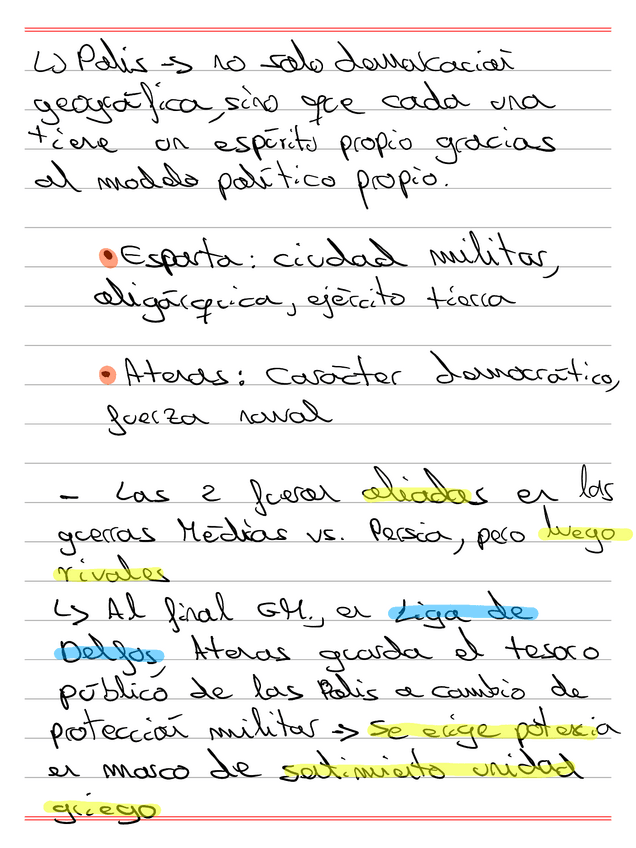 ↳ Polis → no solo demarcación
geográfica, sino que cada una
tiene un espíritu propio gracias
al modelo político propio.
• Esparta: ciudad militar,
oligárquica, ejército tierra
• Atenas: carácter democrático,
fuerza naval
- Las 2 fueron aliadas en las
guerras Médias vs. Persia, pero luego
rivales
↳ Al final GM., en Liga de
Delfos, Atenas guarda el tesoro
público de las Polis a cambio de
protección militar → se erige potencia
en marco de sentimiento unidad
griego